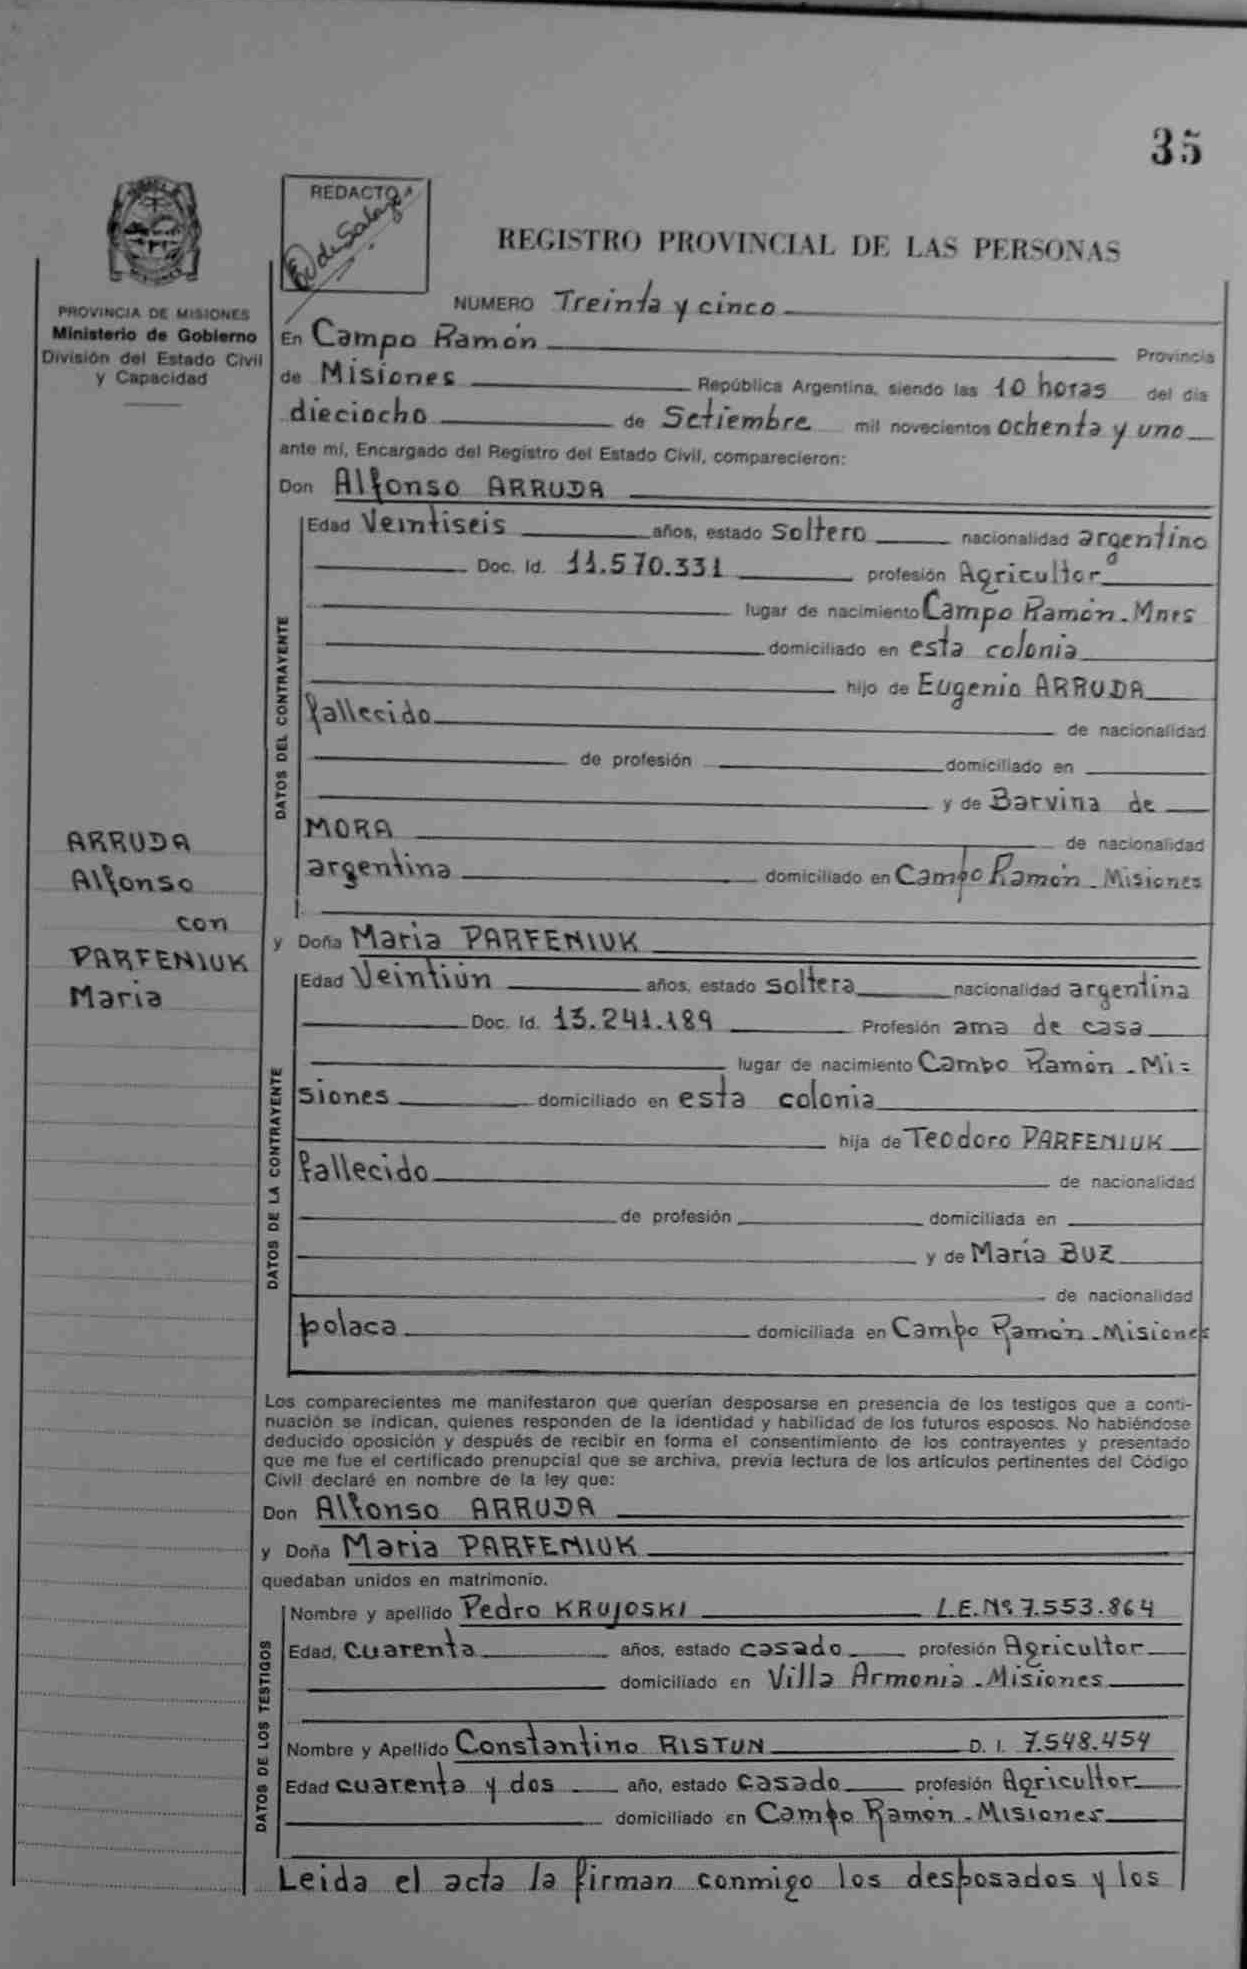 35
REDACTO
REGISTRO PROVINCIAL DE LAS PERSONAS
PROVINCIA DE MISIONES
Ministerio de Gobierno
División del Estado Civil
y Capacidad
NUMERO Treinta y cinco
En Campo Ramón Provincia
de Misiones República Argentina, siendo las 10 horas del día
dieciocho de Setiembre mil novecientos ochenta y uno
ante mí, Encargado del Registro del Estado Civil, comparecieron:
Don Alfonso ARRUDA
DATOS DEL CONTRAYENTE
Edad Veintiseis años, estado soltero nacionalidad argentino
Doc. Id. 11.570.331 profesión Agricultor
lugar de nacimiento Campo Ramón - Mnes
domiciliado en esta colonia
hijo de Eugenio ARRUDA
fallecido de nacionalidad
de profesión domiciliado en
y de Barvina de
MORA de nacionalidad
argentina domiciliado en Campo Ramón - Misiones
ARRUDA
Alfonso
con
PARFENIUK
Maria
y Doña Maria PARFENIUK
DATOS DE LA CONTRAYENTE
Edad Veintiún años, estado soltera nacionalidad argentina
Doc. Id. 13.241.189 Profesión ama de casa
lugar de nacimiento Campo Ramón - Mi=
siones domiciliado en esta colonia
hija de Teodoro PARFENIUK
fallecido de nacionalidad
de profesión domiciliada en
y de María BUZ
de nacionalidad
polaca domiciliada en Campo Ramón - Misiones
Los comparecientes me manifestaron que querían desposarse en presencia de los testigos que a conti-
nuación se indican, quienes responden de la identidad y habilidad de los futuros esposos. No habiéndose
deducido oposición y después de recibir en forma el consentimiento de los contrayentes y presentado
que me fue el certificado prenupcial que se archiva, previa lectura de los artículos pertinentes del Código
Civil declaré en nombre de la ley que:
Don Alfonso ARRUDA
y Doña Maria PARFENIUK
quedaban unidos en matrimonio.
DATOS DE LOS TESTIGOS
Nombre y apellido Pedro KRUJOSKI L.E.Nº 7.553.864
Edad, cuarenta años, estado casado profesión Agricultor
domiciliado en Villa Armonia - Misiones
Nombre y Apellido Constantino RISTUN D. I. 7.548.454
Edad cuarenta y dos año, estado casado profesión Agricultor
domiciliado en Campo Ramón - Misiones
Leida el acta la firman conmigo los desposados y los